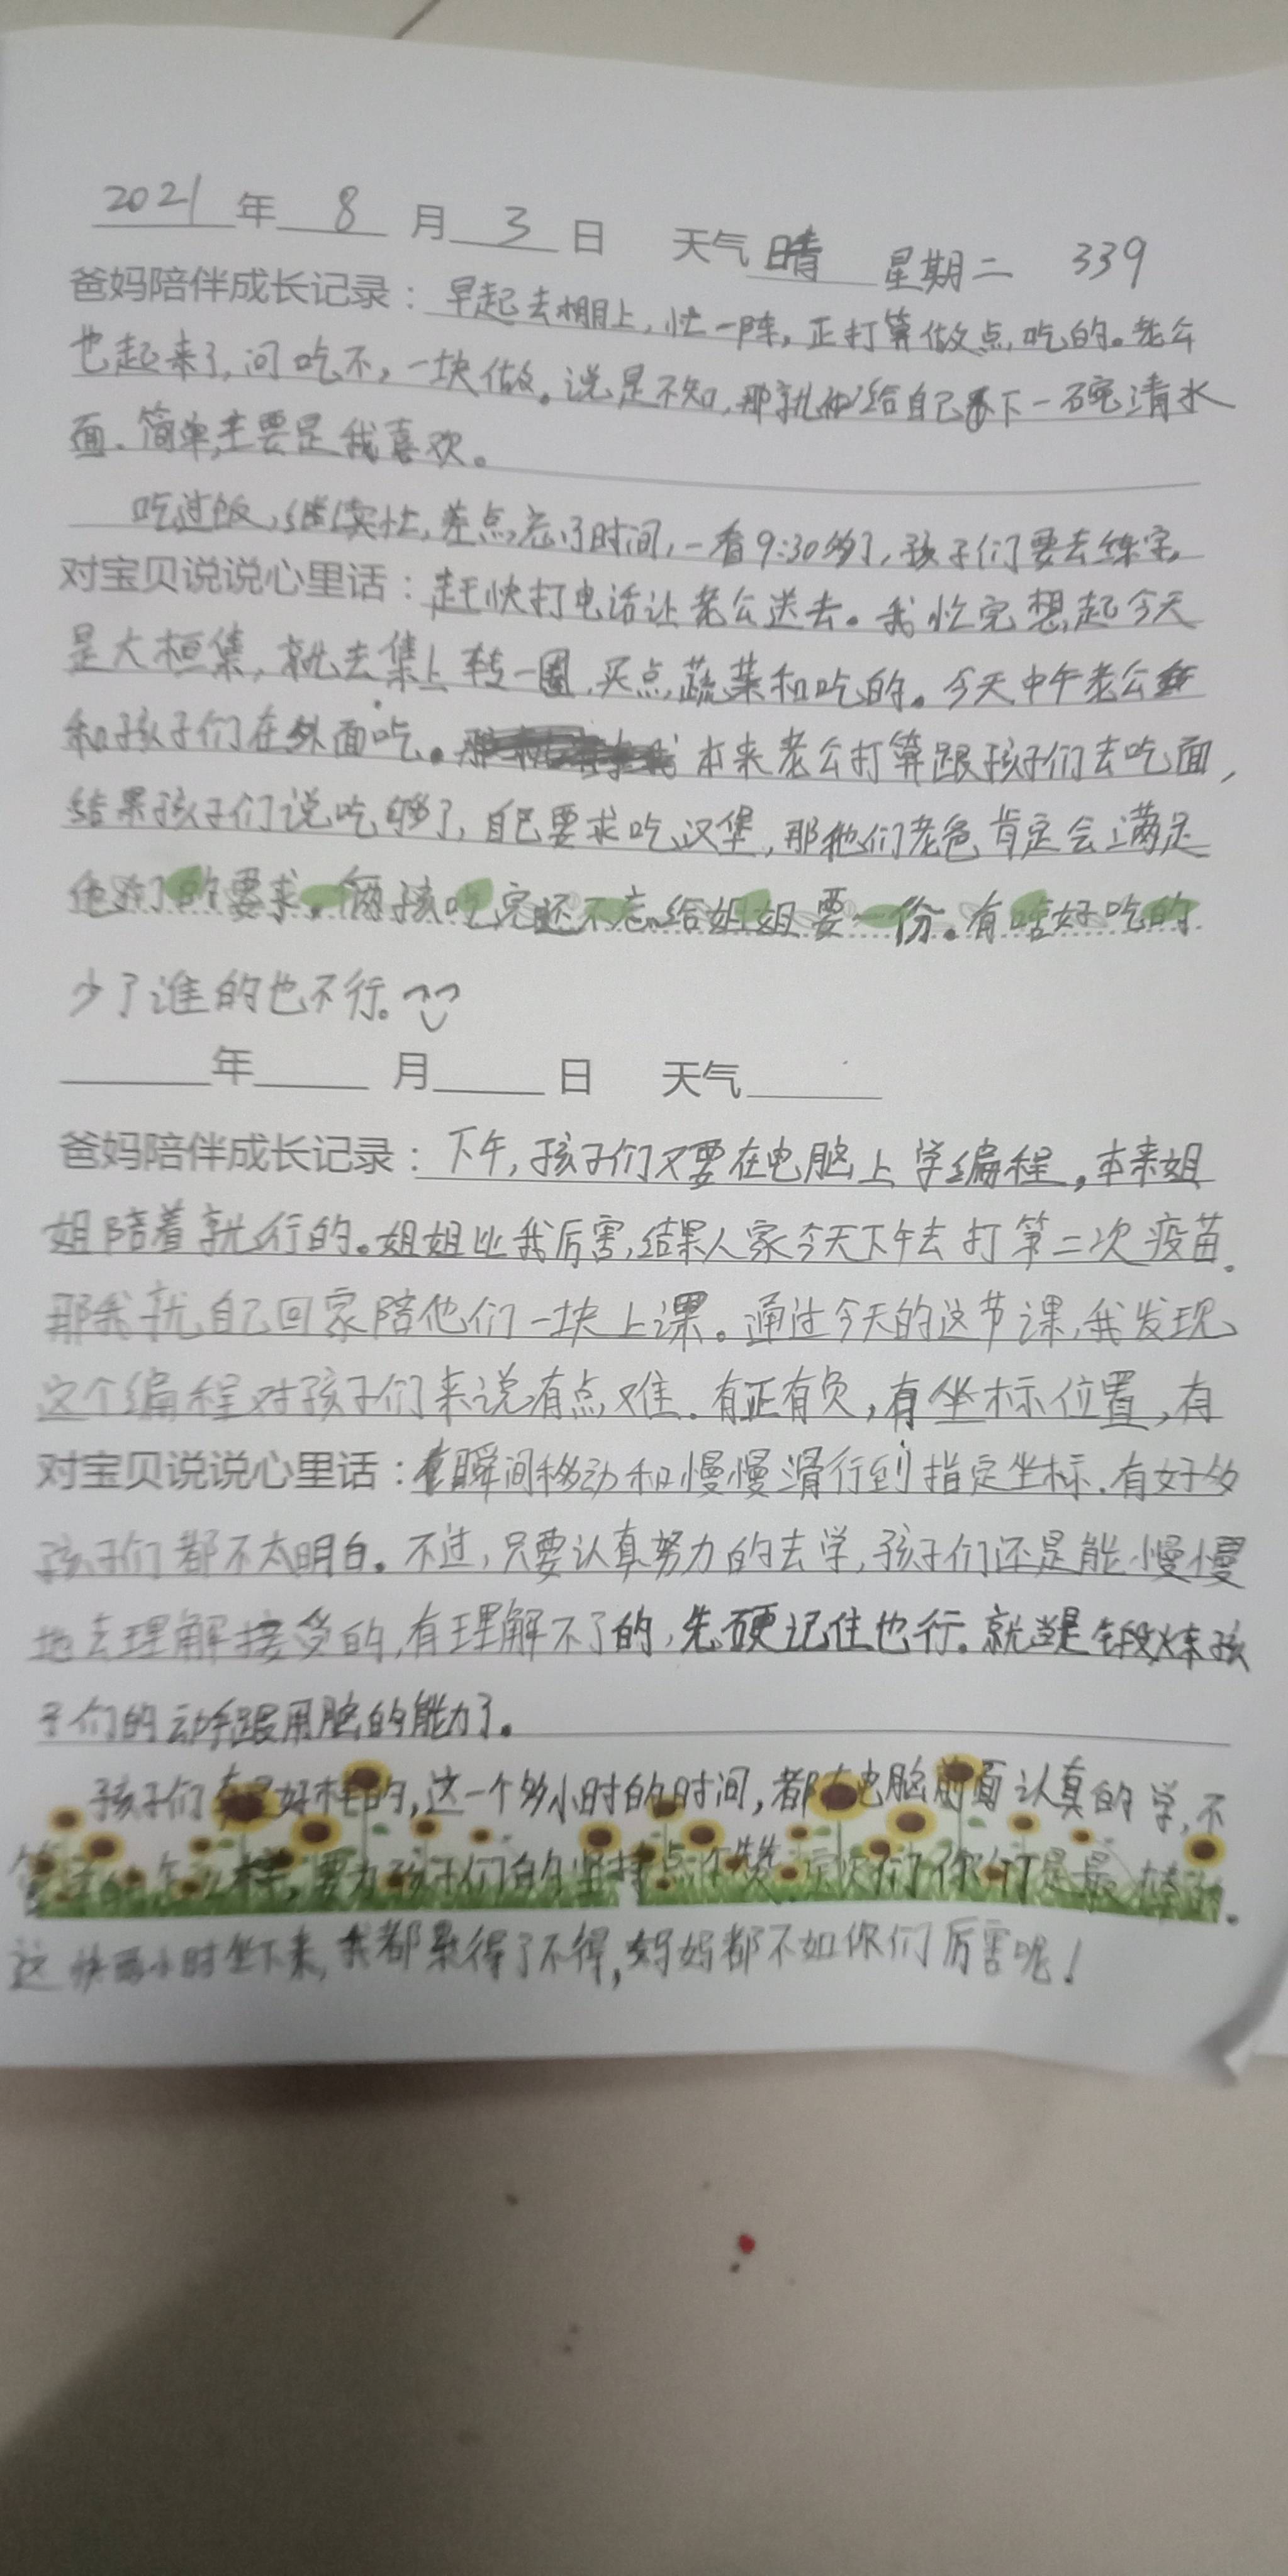 2021年 8 月 3 日 天气 晴 星期二 339
爸妈陪伴成长记录：早起去棚上，忙一阵，正打算做点吃的。老公
也起来了，问吃不，一块做。说是不知，那就给自己下一碗清水
面、简单，主要是我喜欢。
吃过饭，继续忙，差点忘了时间，一看9:30多了，孩子们要去练字，
对宝贝说说心里话：赶快打电话让老公送去。我忙完想起今天
是大桓集，就去集上转一圈，买点蔬菜和吃的。今天中午老公
和孩子们在外面吃。本来老公打算跟孩子们去吃面，
结果孩子们说吃够了，自己要求吃汉堡，那他们老爸肯定会满足
他们的要求。俩孩吃完还不忘给姐姐要一份。有啥好吃的
少了谁的也不行。
年 月 日 天气
爸妈陪伴成长记录：下午，孩子们又要在电脑上学编程，本来姐
姐陪着就行的。姐姐比我厉害，结果人家今天下午去打第二次疫苗。
那我就自己回家陪他们一块上课。通过今天的这节课，我发现
这个编程对孩子们来说有点难。有正有负，有坐标位置，有
对宝贝说说心里话：瞬间移动和慢慢滑行到指定坐标。有好多
孩子们都不太明白。不过，只要认真努力的去学，孩子们还是能慢慢
地去理解接受的，有理解不了的，先硬记住也行。就当是锻炼孩
子们的动手跟用脑的能力了。
孩子们好样的，这一个多小时的时间，都在电脑前面认真的学，不
要为孩子们的坚持点个赞，你们是最棒的。
这快两小时坐下来，我都累得了不得，妈妈都不如你们厉害呢！